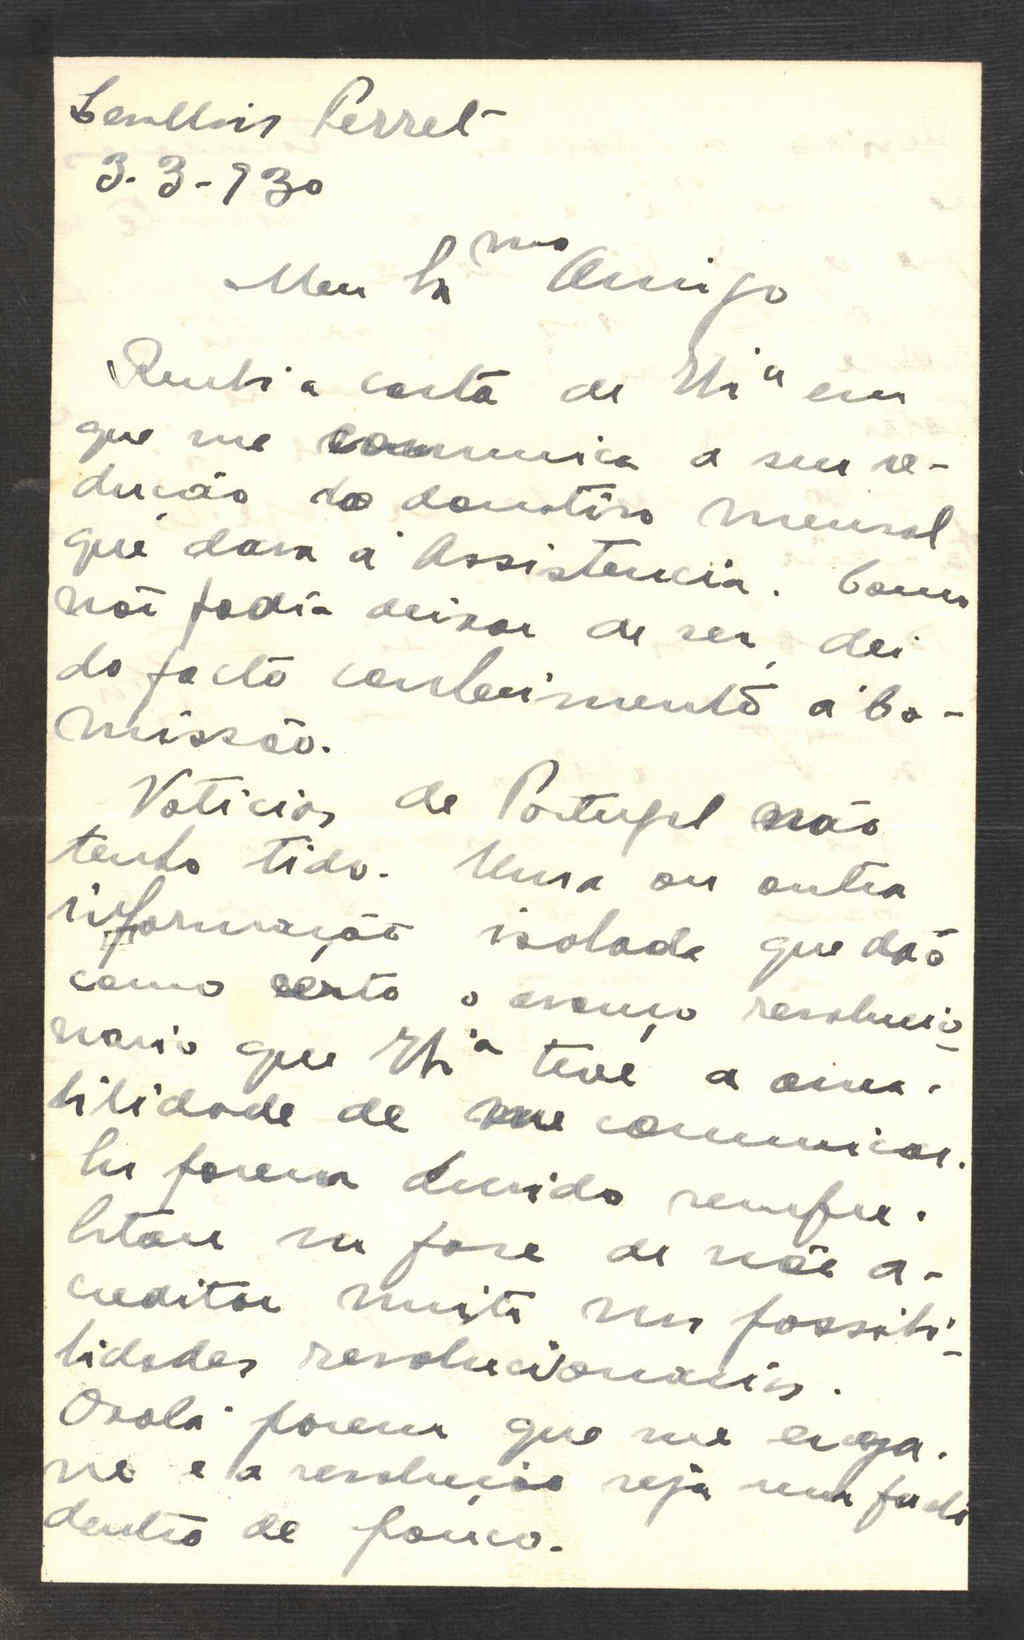 Levallois Perret
3-3-930
Meu Ex.mo Amigo
Recebi a carta de V. Ex.a em
que me comunica a sua re-
dução do donativo mensal
que dava á Assistencia. Como
não podia deixar de ser, dei
do facto conhecimento á Co-
missão.
Noticias de Portugal não
tenho tido. Uma ou outra
informação isolada que dão
como certo o avanço revolucio-
nario que V. Ex.a teve a ama-
bilidade de me comunicar.
Eu porem duvido sempre.
Estou na fase de não a-
creditar muito nas possibi-
lidades revolucionarias.
Oxalá porem que me enga-
ne e a revolução seja um facto
dentro de pouco.